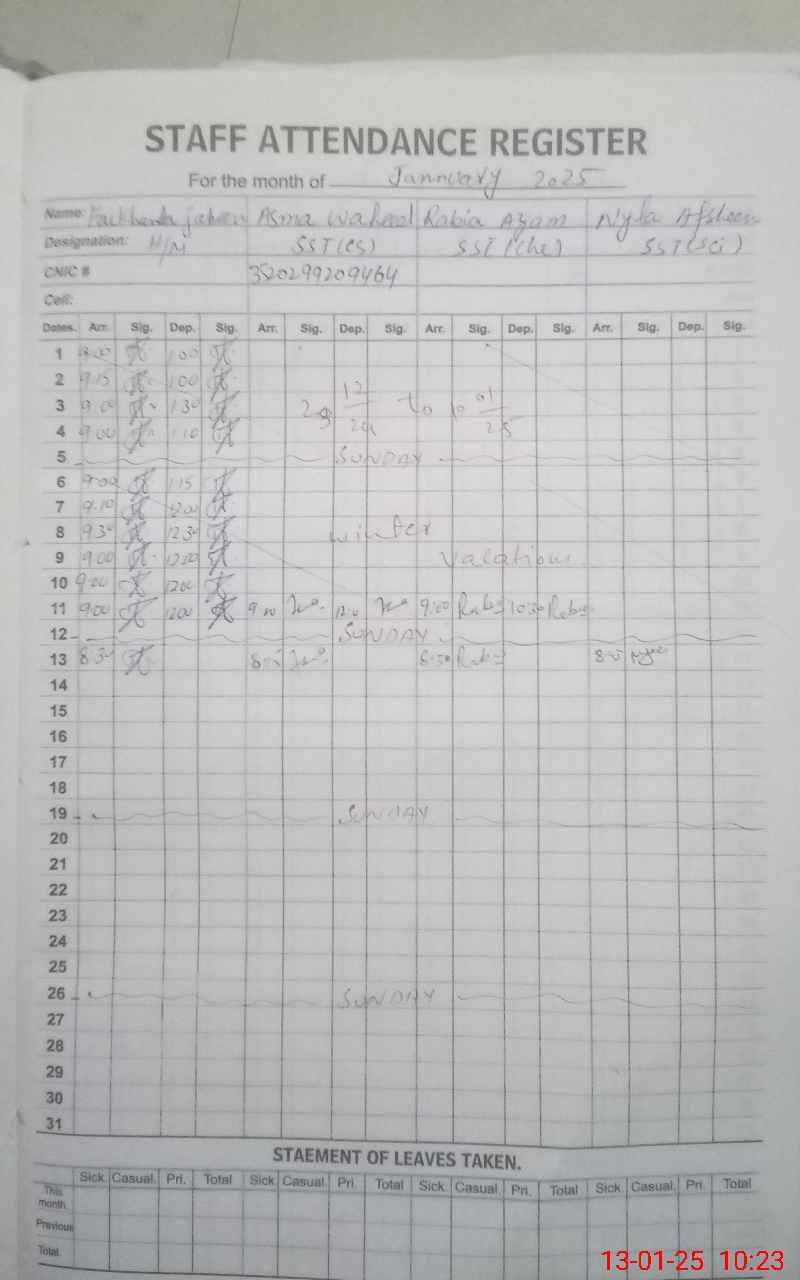 STAFF ATTENDANCE REGISTER
For the month of Jannuary 2025
Name: Asma Waheed Rabia Azam Nyla Afsheen
Designation: H/M SST(CS) SST(che) SST(Sci)
CNIC # 3520299209464
Cell:
Dates. Arr. Sig. Dep. Sig. Arr. Sig. Dep. Sig. Arr. Sig. Dep. Sig. Arr. Sig. Dep. Sig.
1 1 00
2 9 15 1 00
3 9 00 1 30 12/24 to 10 01/25
4 9 00 1 10
5 SUNDAY
6 9 00 1 15
7 9 10 1200
8 9 30 12 30 Winter
9 9 00 Vacations
10 9 00 1200
11 9 00 1200 9 00 9:00 Rab 10:30 Rab
12 SUNDAY
13 8 30 8:30 Rab
14
15
16
17
18
19 SUNDAY
20
21
22
23
24
25
26 SUNDAY
27
28
29
30
31
STAEMENT OF LEAVES TAKEN.
Sick. Casual. Pri. Total Sick. Casual. Pri. Total Sick. Casual. Pri. Total Sick. Casual. Pri. Total
This month.
Previous
Total.
13-01-25 10:23